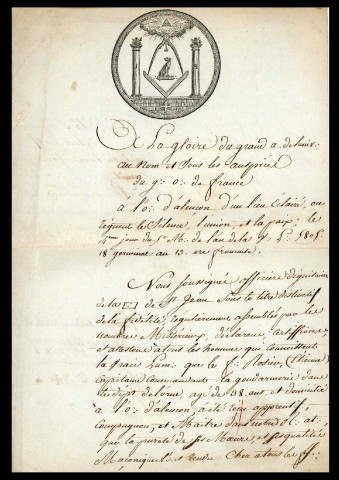 A La gloire du grand a. de lunt.
au nom et sous les auspices
du g∴ o∴ de france
a l'o∴ d'alençon d'un lieu éclairé, ou
regnent le Silence, l'union, et la paix; le
jour du M∴ de l'an de la V∴ L∴ 5805
18 germinal an 13. ere francaise
Nous soussignés officiers dignitaires
de la [ ] de St Jean Sous le titre distinctif
de la fidelité, regulierement assemblés par les
nombre Misterieux, déclarons, certiffions
et attestons a tous les hommes qui connoissent
la vraie Lum∴ que le f∴ Rosier, (Etienne)
Capitaine Commandant la gendarmerie dans
le dept de l'orne, agé de 38. ans, et domicilié
a l'o∴ d'alençon, a été reçu apprentif,
Compagnon, et Maitre dans notre at∴
que la pureté de ses Moeurs, et ses qualités
Maçoniques l'ont rendu Cher a tous les ff∴